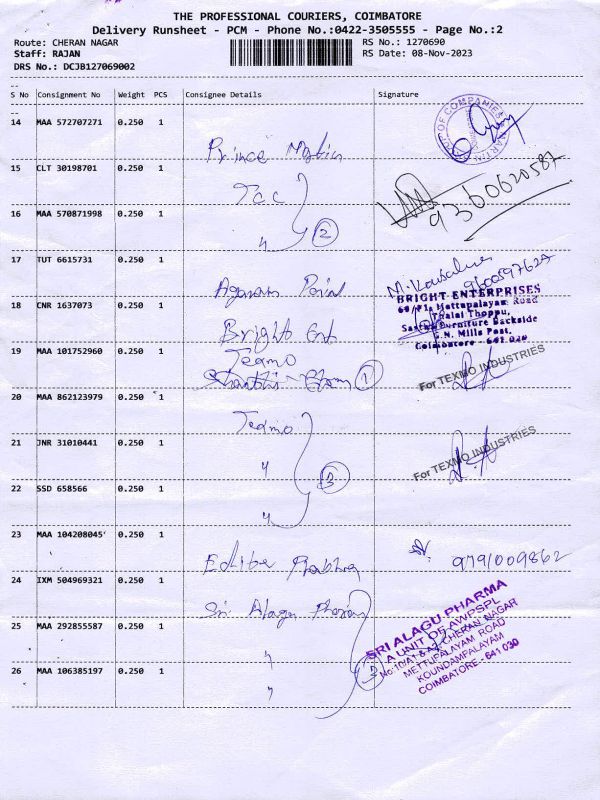 THE PROFESSIONAL COURIERS, COIMBATORE
Delivery Runsheet - PCM - Phone No.:0422-3505555 - Page No.:2
Route: CHERAN NAGAR RS No.: 1270690
Staff: RAJAN RS Date: 08-Nov-2023
DRS No.: DCJB127069002
--
S No Consignment No Weight PCS Consignee Details Signature
--
14 MAA 572707271 0.250 1
Prince
15 CLT 30198701 0.250 1
Tcc 9360620587
16 MAA 570871998 0.250 1
" 2
17 TUT 6615731 0.250 1
9600597627
18 CNR 1637073 0.250 1
Bright Ent
BRIGHT ENTERPRISES
Mettupalayam Road
Thalai Thoppu,
Furniture Backside
S.N. Mills Post,
Coimbatore - 641 029
19 MAA 101752960 0.250 1
Texmo
1
For TEXMO INDUSTRIES
20 MAA 862123979 0.250 1
Texmo
21 JNR 31010441 0.250 1
" 3
For TEXMO INDUSTRIES
22 SSD 658566 0.250 1
"
23 MAA 104208045 0.250 1
Prabha 9791009862
24 IXM 504969321 0.250 1
Sri Alagu Pharma
25 MAA 292855587 0.250 1
"
26 MAA 106385197 0.250 1
" 3
SRI ALAGU PHARMA
A UNIT OF AWPSPL
CHERAN NAGAR
METTUPALAYAM ROAD
KOUNDAMPALAYAM
COIMBATORE - 641 030